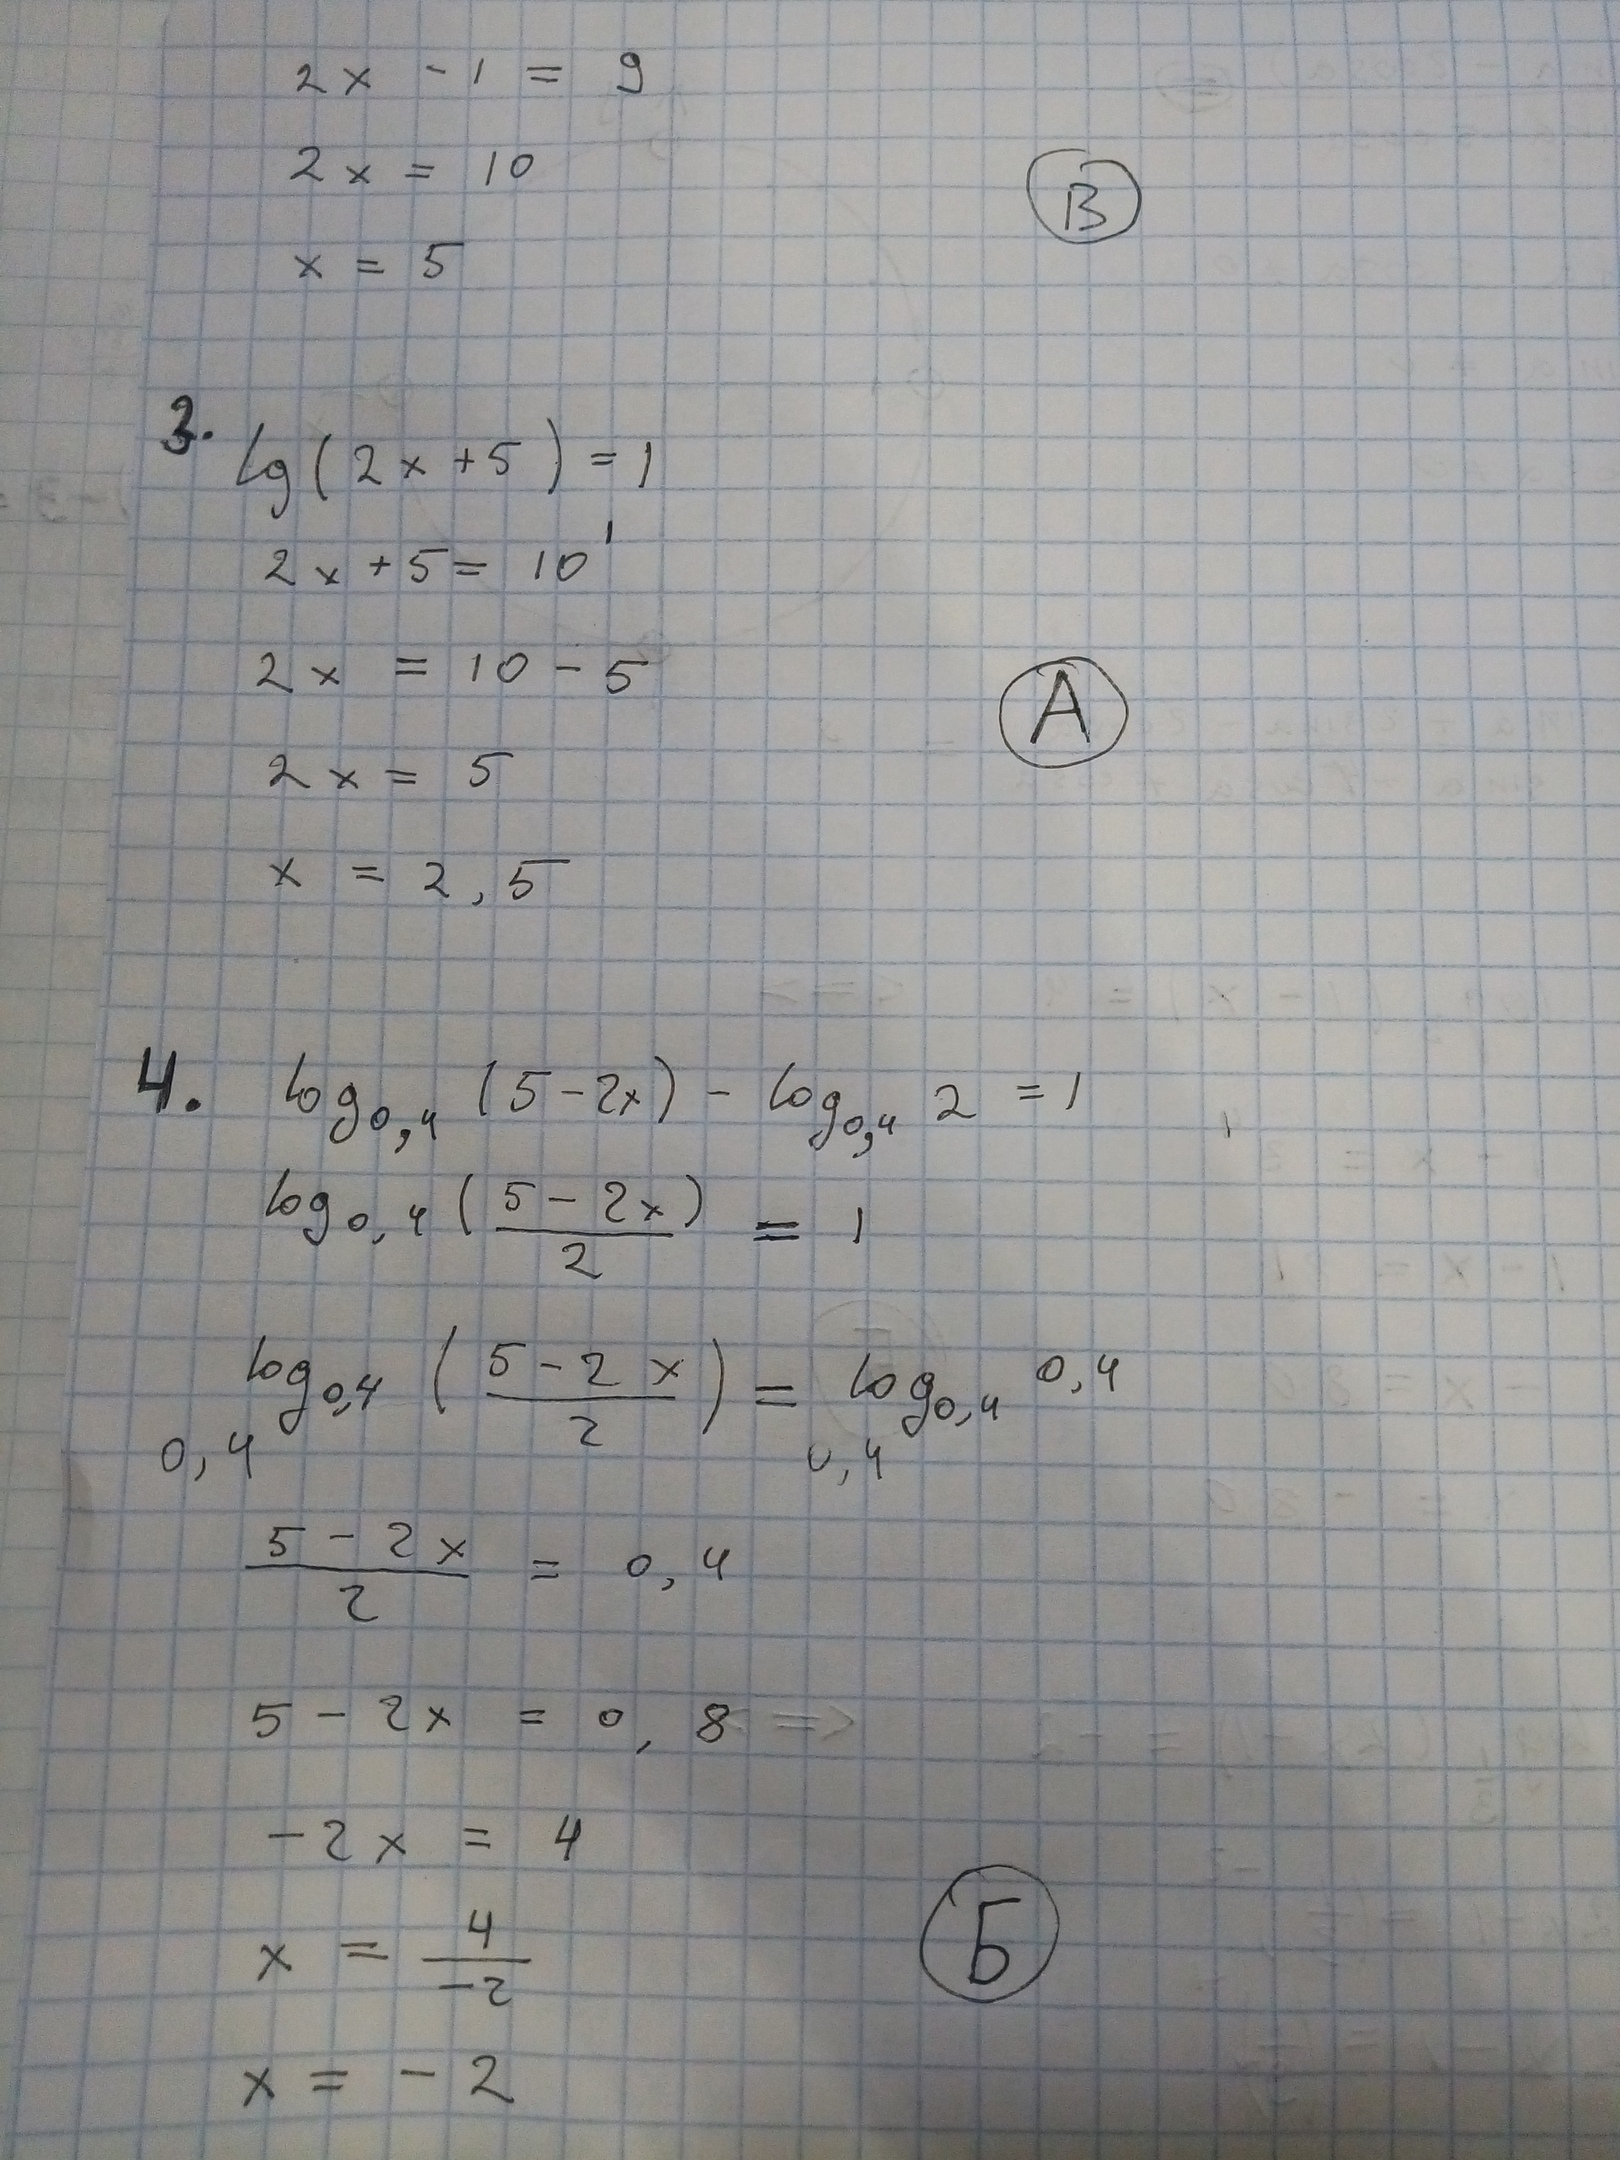 2x - 1 = 9
2x = 10
В
x = 5
3. lg(2x+5) = 1
2x+5 = 10¹
2x = 10 - 5
А
2x = 5
x = 2,5
4. log₀,₄ (5-2x) - log₀,₄ 2 = 1
log₀,₄ ((5-2x)/2) = 1
0,4^(log₀,₄ ((5-2x)/2)) = 0,4^(log₀,₄ 0,4)
(5-2x)/2 = 0,4
5 - 2x = 0,8
-2x = 4
x = 4/-2
Б
x = -2